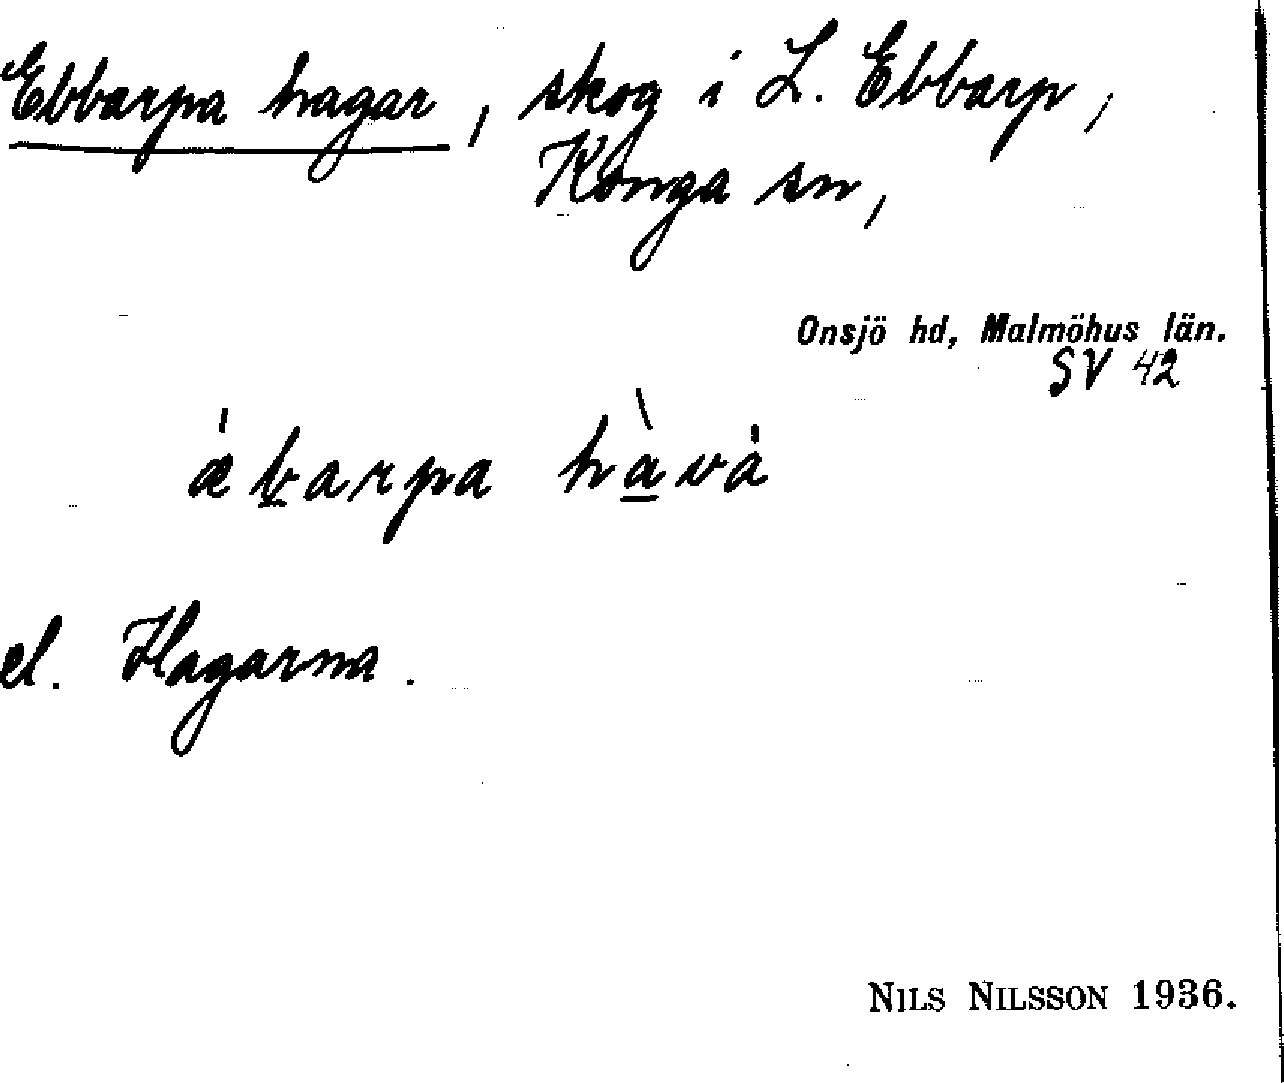 Ebbarpa hagar, skog i L. Ebbarp,
Konga sn,
Onsjö hd, Malmöhus län.
SV 42
ǽb̲arpa hà̲vȧ
el. Hagarna.
NILS NILSSON 1936.